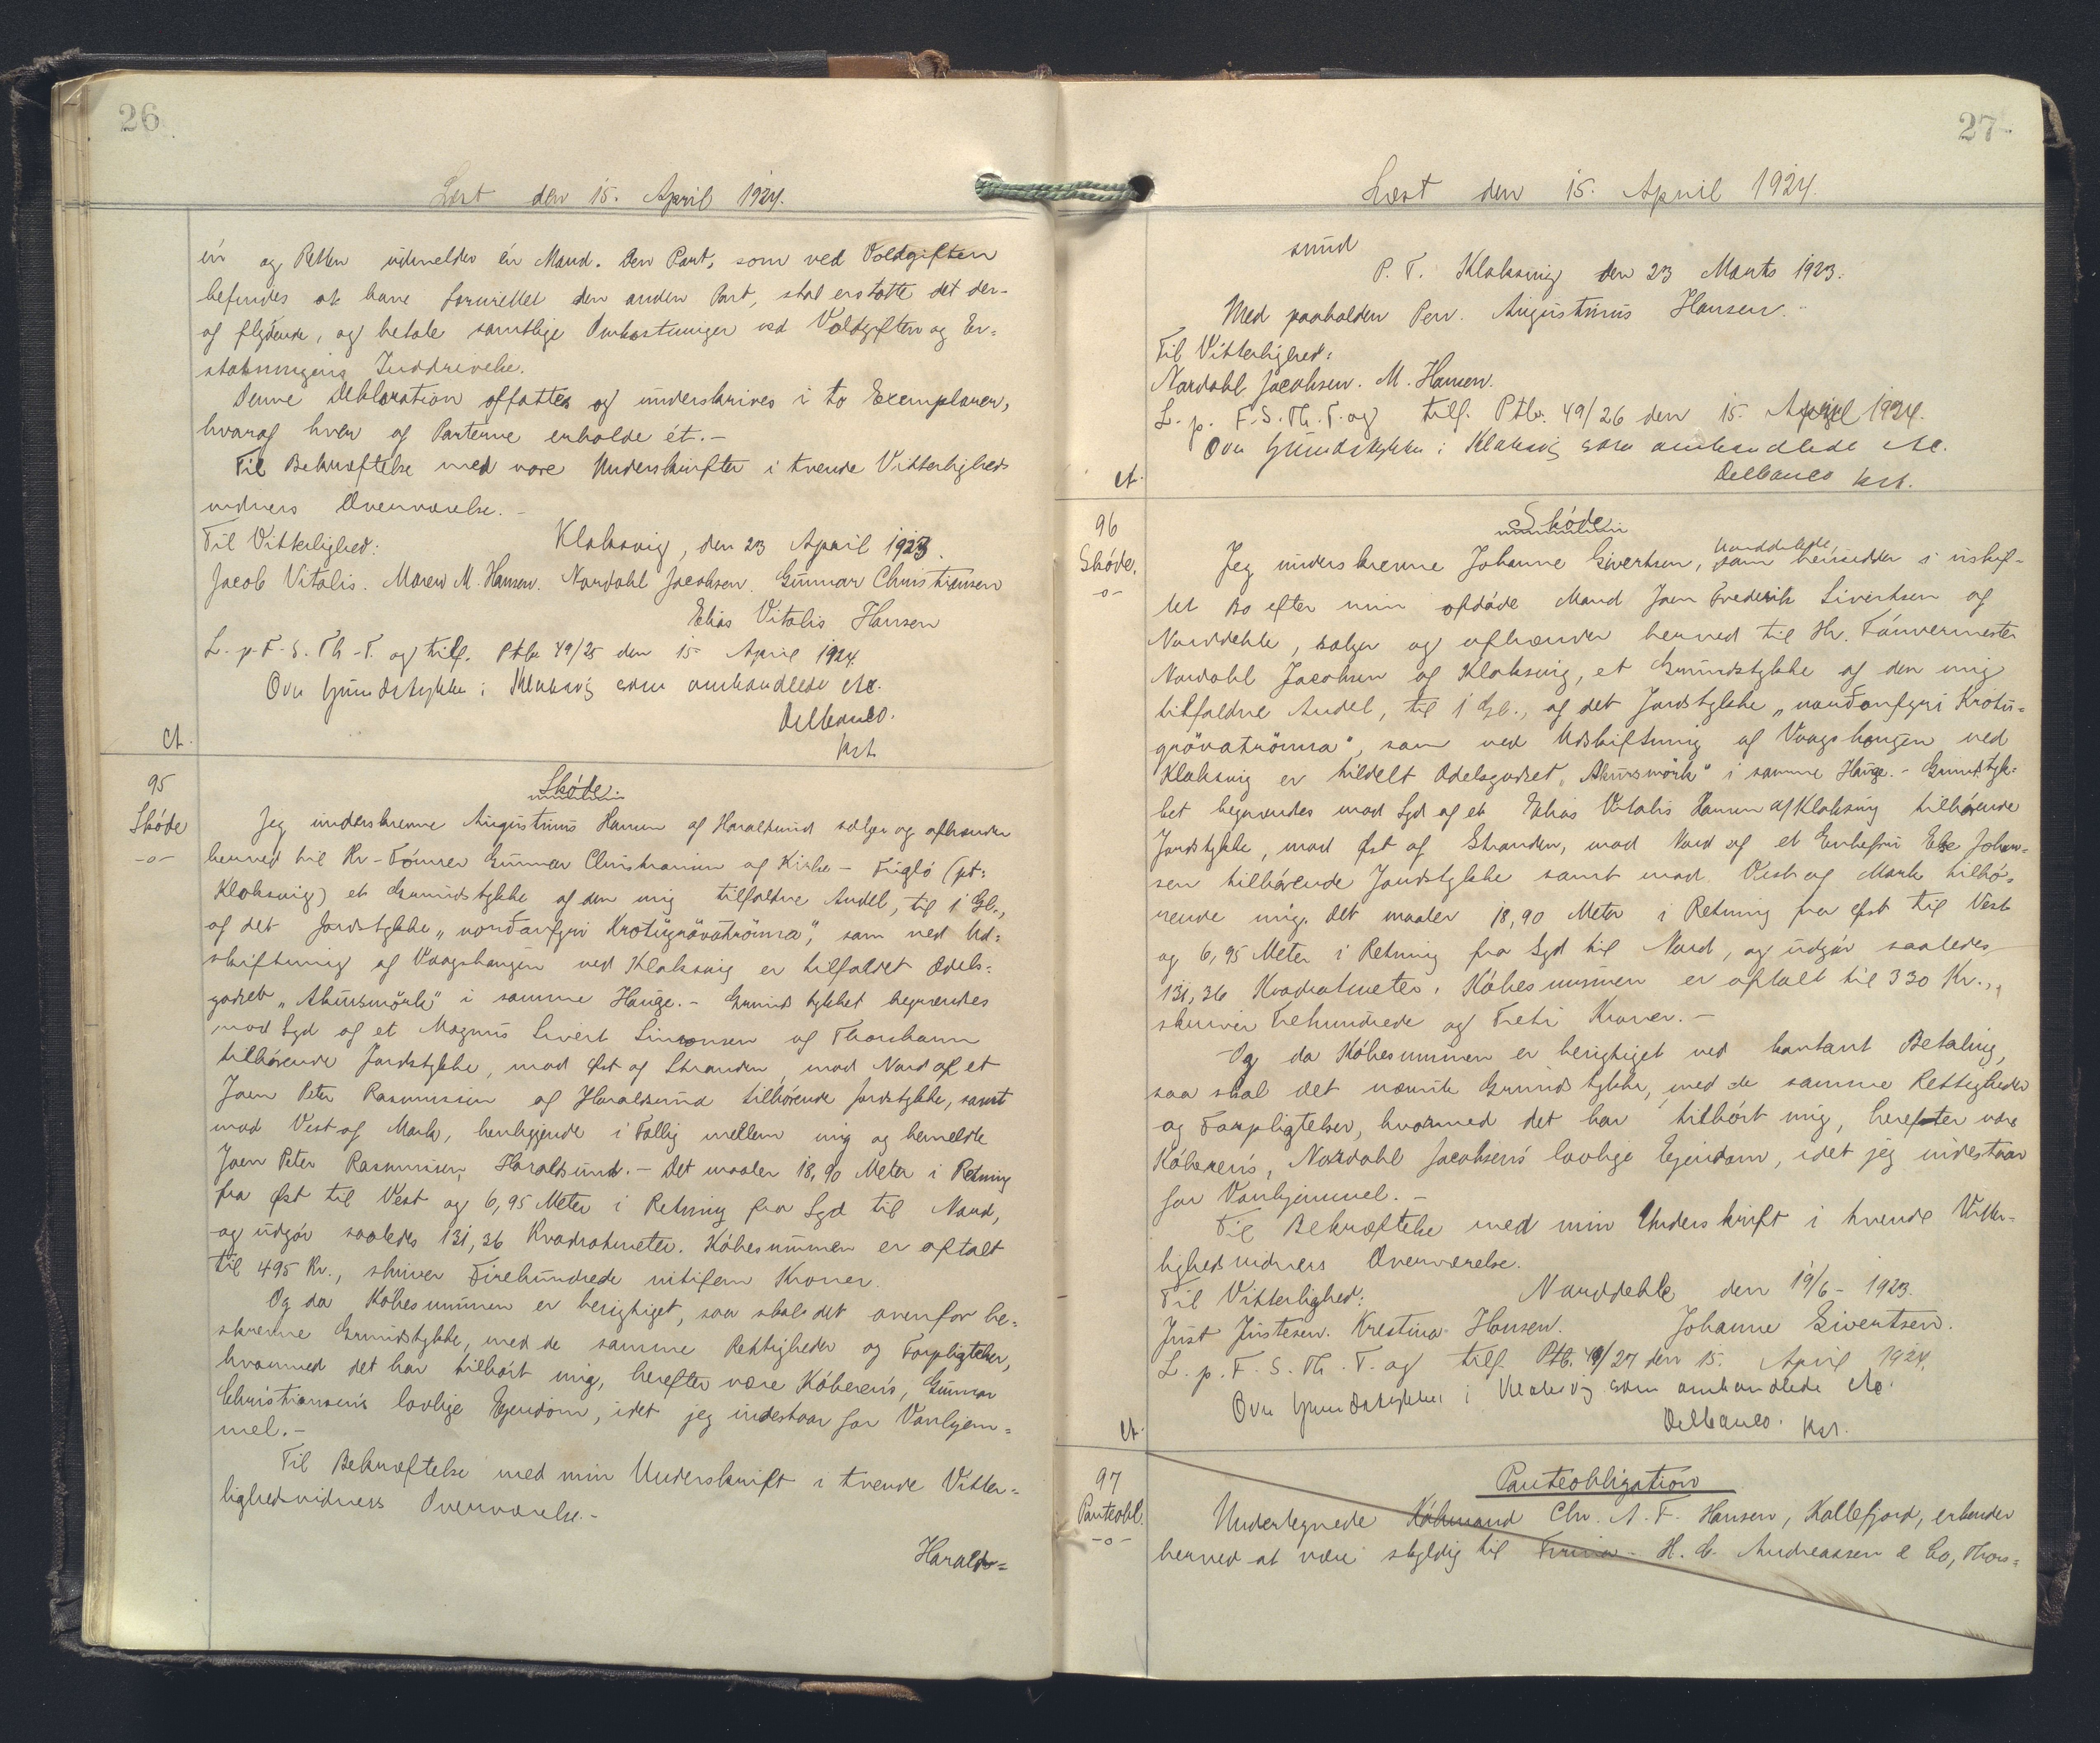 26
Læst den 15. April 1924.
én og Retten udmelder én Mand. Den Part, som ved Voldgiften
befindes at have forurettet den anden Part, skal erstatte det der-
af flydende, og betale samtlige Omkostninger ved Voldgiften og Er=
statningens Inddrivelse.
Denne Deklaration affattes og underskrives i to Exemplarer,
hvoraf hver af Parterne erholde ét.-
Til Bekræftelse med vore Underskrifter i tvende Vitterligheds
vidners Overværelse.-
Til Vitterlighed:
Klaksvig, den 23 April 1923.
Jacob Vitalis. Maren M. Hansen. Nordahl Jacobsen. Gunnar Christiansen
Elias Vitalis Hansen
L. p. F. S. Th. T. og tilf. Ptb. 49/25 den 15 April 1924.
Ovn Grundstykke i Klaksvig som omhandlede etc.
Delbanco.
kst.
Ct.
95
Skóde
-o-
Skóde.
Jeg underskrevne Augustinus Hansen af Haraldsund sælger og afhænder
herved til Hr. Tómrer Gunnar Christiansen af Kirke- Fugló (pt.
Klaksvig) et Grundstykke af den mig tilfaldne Andel, til 1 Gl.,
af det Jordstykke „norðanfyri Krotugrövatrönna", som ved Ud=
skiftning af Vaagshaugen ved Klaksvig er tilfaldet Odels=
godset „Akursmörk" i samme Hauge.- Grundstykket begrændses
mod Syd af et Magnus Sivert Simonsen af Thorshavn
tilhórende Jordstykke, mod Øst af Stranden, mod Nord af et
Joen Peter Rasmussen af Haraldsund tilhórende Jordstykke, samt
mod Vest af Mark, henliggende i Fællig mellem mig og bemeldte
Joen Peter Rasmussen, Haraldsund.- Det maaler 18,90 Meter i Retning
fra Øst til Vest og 6,95 Meter i Retning fra Syd til Nord,
og udgór saaledes 131,36 Kvadratmeter. Kóbesummen er aftalt
til 495 Kr., skriver Firehundrede nitifem Kroner.
Og da Kóbesummen er berigtiget, saa skal det ovenfor be=
skrevne Grundstykke, med de samme Rettigheder og Forpligtelser,
hvormed det har tilhórt mig, herefter være Kóberens, Gunnar
Christiansens lovlige Ejendom, idet jeg indestaar for Vanhjem=
mel.-
Til Bekræftelse med min Underskrift i tvende Vitter=
lighedsvidners Overværelse.-
Haralds=
27
Læst den 15. April 1924.
sund
P. T. Klaksvig den 23 Marts 1923.
Med paaholden Pen. Augustinus Hansen.
Til Vitterlighed:
Nordahl Jacobsen. M. Hansen.
L. p. F. S. Th. T. og tilf. Ptb. 49/26 den 15. April 1924.
Ovn Grundstykke i Klaksvig som omhandlede etc.
Delbanco kst.
Ct.
96
Skóde.
-o-
Skóde
Norddeble,
Jeg underskrevne Johanne Sivertsen, som hensidder i uskif-
tet Bo efter min afdóde Mand Joen Frederik Sivertsen af
Norddeble, sælger og afhænder herved til Hr. Tómrermester
Nordahl Jacobsen af Klaksvig, et Grundstykke af den mig
tilfaldne Andel, til 1 Gl., af det Jordstykke „norðanfyri Krotu=
grövatrönna", som ved Udskiftning af Vaagshaugen ved
Klaksvig er tildelt Odelsgodset „Akursmörk" i samme Hauge.- Grundstyk=
ket begrændes mod Syd af et Elias Vitalis Hansen af Klaksvig tilhórende
Jordstykke, mod Øst af Stranden, mod Nord af et Enkefru Else Johan=
sen tilhórende Jordstykke samt mod Vest af Mark tilhó=
rende mig. Det maaler 18,90 Meter i Retning fra Øst til Vest
og 6,95 Meter i Retning fra Syd til Nord, og udgór saaledes
131,36 Kvadratmeter. Kóbesummen er aftalt til 330 Kr.,
skriver Trehundrede og Treti Kroner.-
Og da Kóbesummen er berigtiget ved kontant Betaling,
saa skal det nævnte Grundstykke, med de samme Rettigheder
og Forpligtelser, hvormed det har tilhórt mig, herefter være
Kóberens, Nordahl Jacobsen's lovlige Ejendom, idet jeg indestaar
for Vanhjemmel.-
Til Bekræftelse med min Underskrift i tvende Vitter-
lighedsvidners Overværelse.
Til Vitterlighed:
Norddeble den 19/6- 1923.
Just Justesen. Krestina Hansen.
Johanne Sivertsen.
L. p. F. S. Th. T. og tilf. Ptb. 49/27 den 15. April 1924.
Ovn Grundstykke i Klaksvig som omhandlede etc.
Delbanco. kst.
Ct.
97
Panteobl.
-o-
Panteobligation
Undertegnede Kóbmand Chr. A. F. Hansen, Kollefjord, erkender
herved at være skyldig til Firma H. C. Andreassen & Co, Thors=